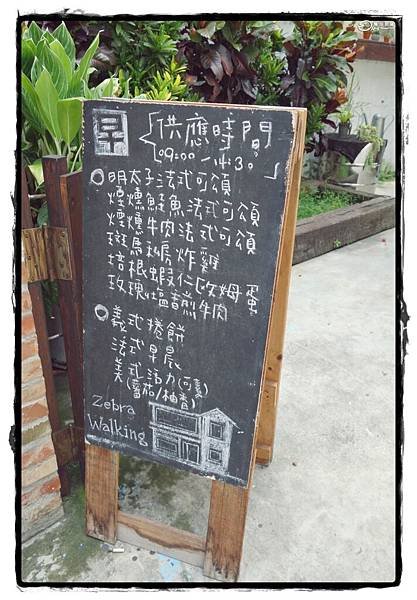 早
供應時間
09:00-14:30。
明太子法式可頌
煙燻鮭魚法式可頌
煙燻牛肉法式可頌
斑馬私房炸雞
培根蝦仁歐姆蛋
玫瑰塩香煎牛肉
義式捲餅
法式早晨
美式活力(可素)
(蕃茄/柚香)
Zebra
Walking